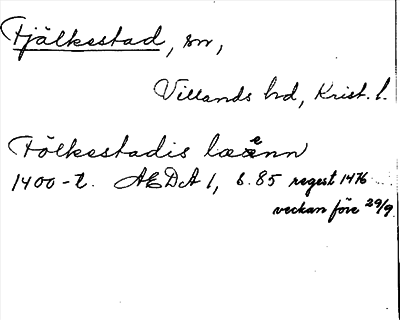 Fjälkestad, sn,
Villands hd, Krist. l.
Fölkestadis læenn
1400-t. AEDA 1, s. 85 regest 1476
veckan före 29/9